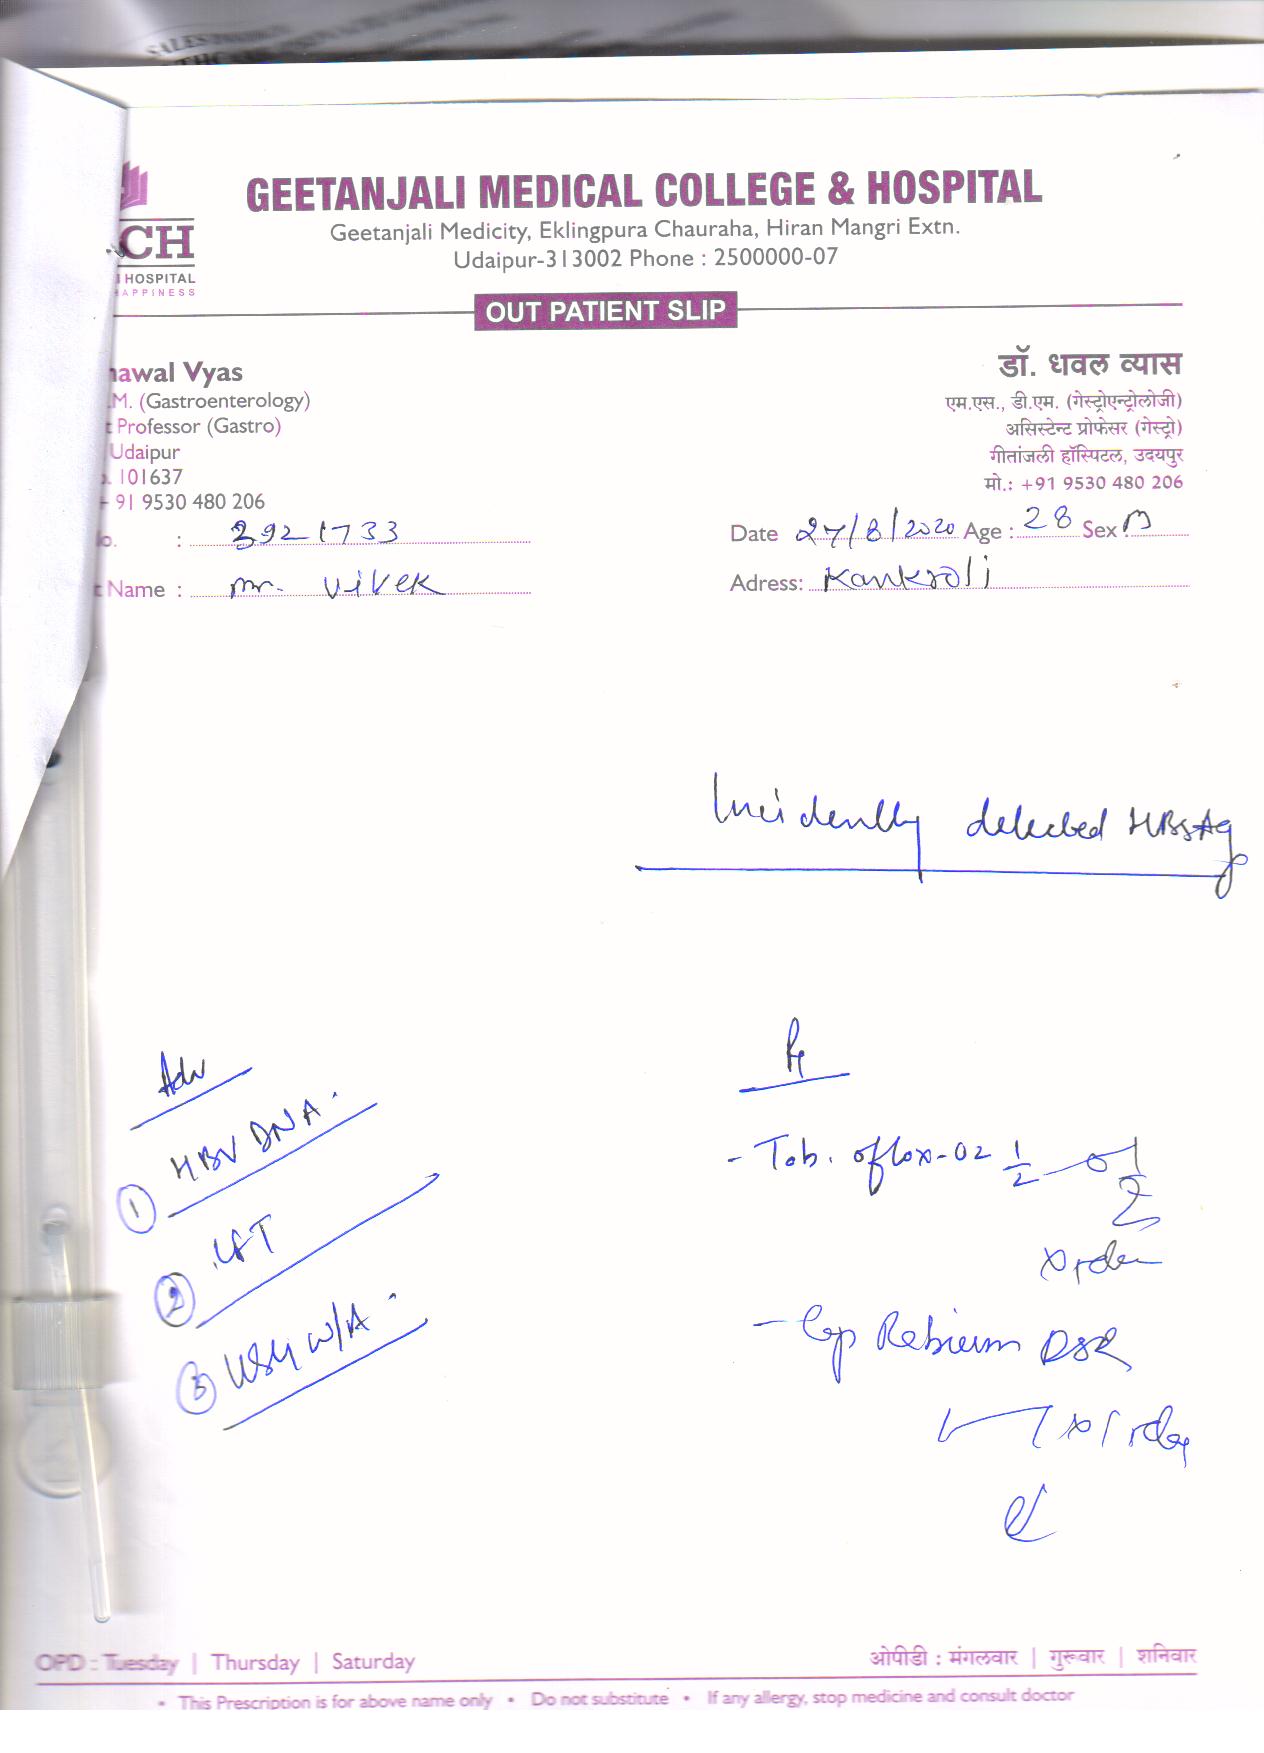 GEETANJALI MEDICAL COLLEGE & HOSPITAL
Geetanjali Medicity, Eklingpura Chauraha, Hiran Mangri Extn.
Udaipur-313002 Phone : 2500000-07
CH
HOSPITAL
APPINESS
OUT PATIENT SLIP
hawal Vyas
.M. (Gastroenterology)
t Professor (Gastro)
Udaipur
. 101637
+ 91 9530 480 206
डॉ. धवल व्यास
एम.एस., डी.एम. (गेस्ट्रोएन्ट्रोलोजी)
असिस्टेन्ट प्रोफेसर (गेस्ट्रो)
गीतांजली हॉस्पिटल, उदयपुर
मो.: +91 9530 480 206
o. : 3921733
Date 27/8/2020 Age : 28 Sex : M
t Name : Mr. Vivek
Adress: Kankroli
Incidently detected HBsAg
Adv
① HBV DNA
② LFT
③ USG W/A
Rx
- Tab. oflox-02 1/2
- Cap DSR
OPD : Tuesday | Thursday | Saturday
ओपीडी : मंगलवार | गुरूवार | शनिवार
• This Prescription is for above name only • Do not substitute • If any allergy, stop medicine and consult doctor